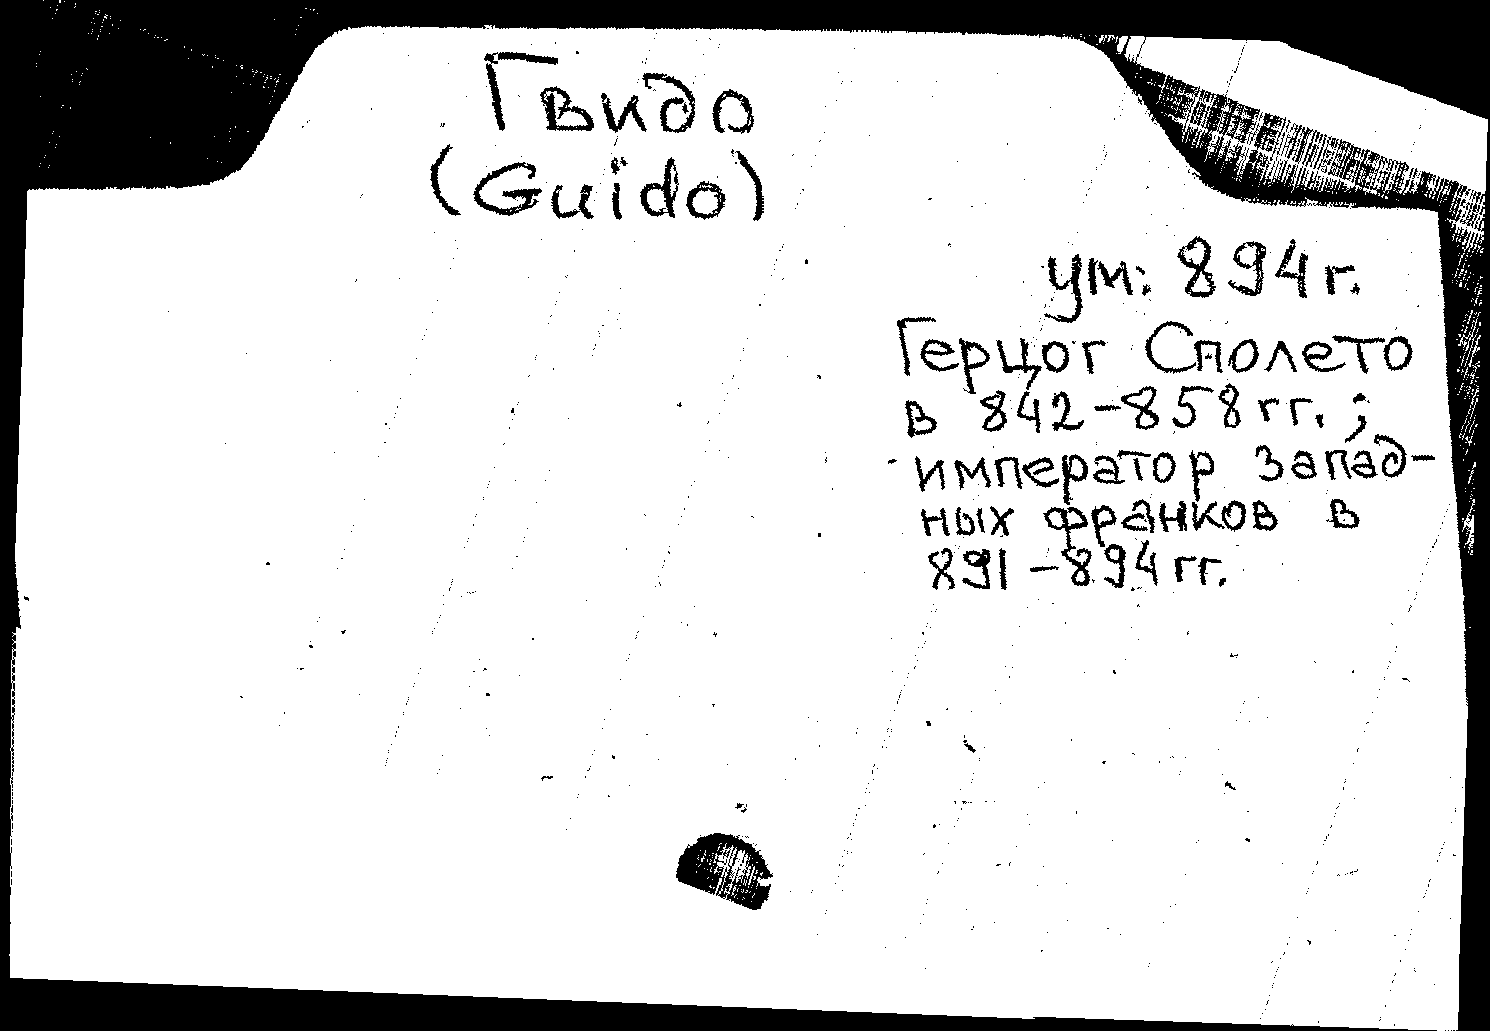 Гвидо
(Guïdo)
ум: 894 г.
Герцог Сполето
в 842-858 гг.;
император запад-
ных франков в
891-894 гг.